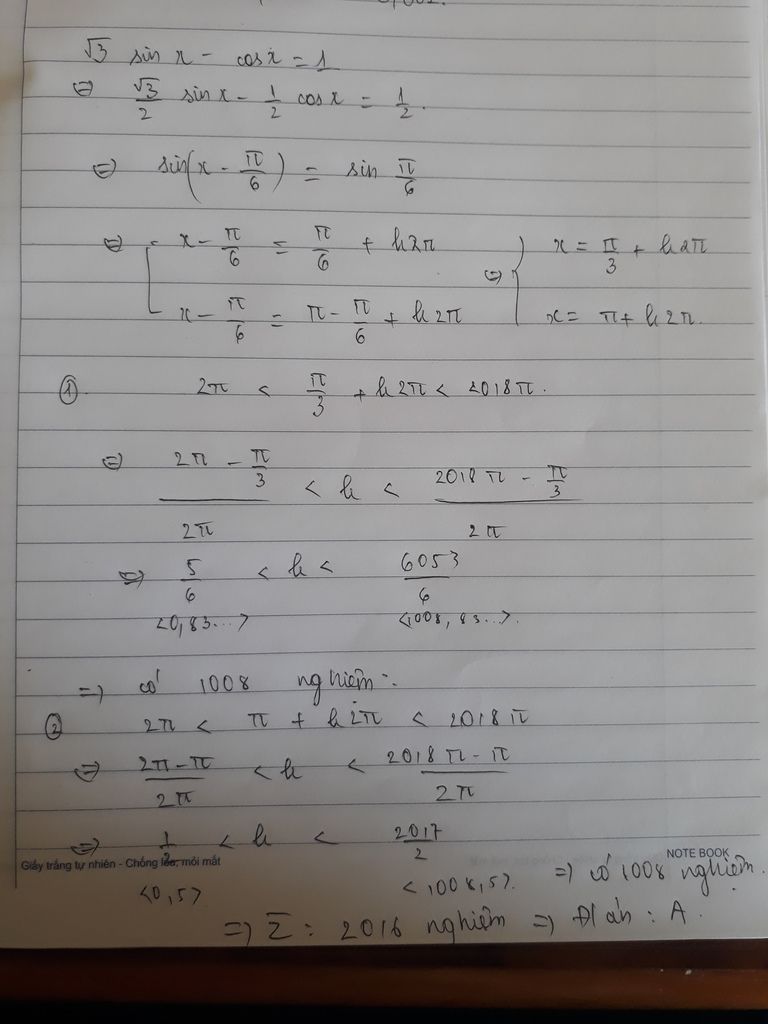 √3 sin x - cos x = 1
⇔ √3/2 sin x - 1/2 cos x = 1/2.
⇔ sin(x - π/6) = sin π/6
⇔ [ x - π/6 = π/6 + k2π ⇔ { x = π/3 + k2π
x - π/6 = π - π/6 + k2π x = π + k2π.
① 2π < π/3 + k2π < 2018π.
⇔ (2π - π/3)/2π < k < (2018π - π/3)/2π
⇔ 5/6 < k < 6053/6
<0,83...> <1008,83...>.
=> có 1008 nghiệm.
② 2π < π + k2π < 2018π
⇔ (2π-π)/2π < k < (2018π-π)/2π
⇔ 1/2 < k < 2017/2
Giấy trắng tự nhiên - Chống lóa, mỏi mắt
NOTE BOOK
<0,5> <1008,5>. => có 1008 nghiệm.
=> Σ : 2016 nghiệm => Đ/án : A.